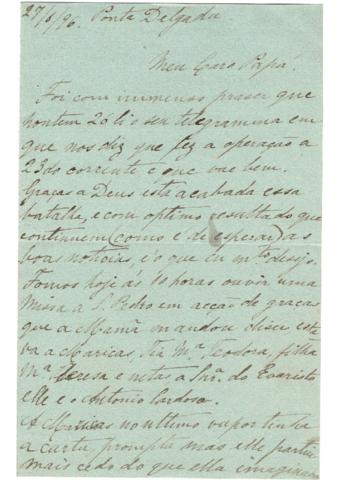 27/6/96. Ponta Delgada
Meu Caro Papá.
Foi com immenso praser que
hontem 26 li o seu telegramma em
que nos diz que fez a operação a
23 do corrente e que vae bem.
Graças a Deus está acabada essa
batalha, e com optimo resultado que
continuem (como é de esperar) as
boas noticias, é o que eu mto desejo.
Fomos hoje ás 10 horas ouvir uma
Missa a S. Pedro em acção de graças
que a Mamã mandou diser esta
va a Maricas, Tia Ma. Teodora, filha
Ma. Teresa e netas, a Snra. do Evaristo
elle e o Antonio Cardoso.
A Maricas no ultimo vapor tinha
a carta, prompta mas elle partiu
mais cedo do que ella imaginava